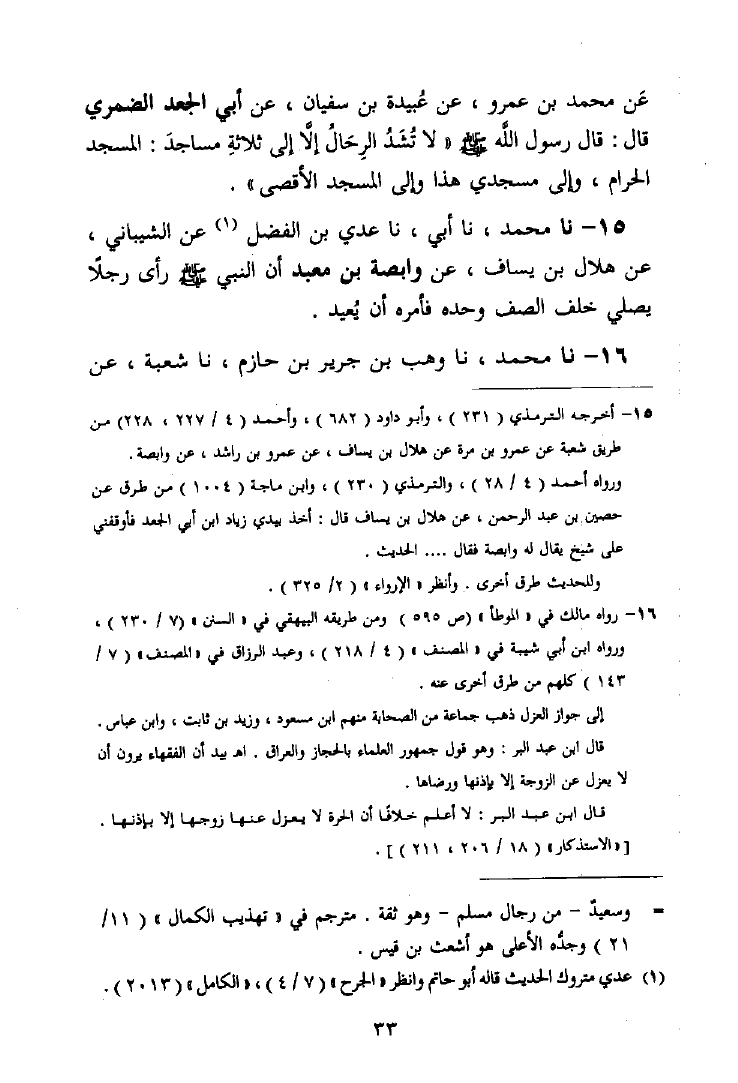 عَن محمد بن عمرو ، عن عُبيدة بن سفيان ، عن أبي الجعد الضمري
قال : قال رسول اللَّه ﷺ « لا تُشَدُ الرِحَالُ إلَّا إلى ثلاثةِ مساجدَ : المسجد
الحرام ، وإلى مسجدي هذا وإلى المسجد الأقصى» .
١٥- نا محمد ، نا أبي ، نا عدي بن الفضل (١) عن الشيباني ،
عن هلال بن يساف ، عن وابصة بن معبد أن النبي ﷺ رأى رجلًا
يصلي خلف الصف وحده فأمره أن يُعيد .
١٦- نا محمد ، نا وهب بن جرير بن حازم ، نا شعبة ، عن
١٥- أخرجه الترمذي ( ٢٣١ ) ، وأبو داود ( ٦٨٢ ) ، وأحمد ( ٤ / ٢٢٧ ، ٢٢٨) من
طريق شعبة عن عمرو بن مرة عن هلال بن يساف ، عن عمرو بن راشد ، عن وابصة .
ورواه أحمد ( ٤ / ٢٨ ) ، والترمذي ( ٢٣٠ ) ، وابن ماجة ( ١٠٠٤ ) من طرق عن
حصين بن عبد الرحمن ، عن هلال بن يساف قال : أخذ بيدي زياد ابن أبي الجعد فأوقفني
على شيخ يقال له وابصة فقال .... الحديث .
وللحديث طرق أخرى . وأنظر « الإرواء » ( ٢/ ٣٢٥ ) .
١٦- رواه مالك في « الموطأ » (ص ٥٩٥ ) ومن طريقه البيهقي في « السنن » (٧ / ٢٣٠ ) ،
ورواه ابن أبي شيبة في « المصنف » ( ٤ / ٢١٨ ) ، وعبد الرزاق في «المصنف» ( ٧ /
١٤٣ ) كلهم من طرق أخرى عنه .
إلى جواز العزل ذهب جماعة من الصحابة منهم ابن مسعود ، وزيد بن ثابت ، وابن عباس .
قال ابن عبد البر : وهو قول جمهور العلماء بالحجاز والعراق . اهـ بيد أن الفقهاء يرون أن
لا يعزل عن الزوجة إلا بإذنها ورضاها .
قال ابن عبد البر : لا أعلم خلافًا أن الحرة لا يعزل عنها زوجها إلا بإذنها .
[ «الاستذكار» ( ١٨ / ٢٠٦ ، ٢١١ ) ] .
= وسعيدٌ - من رجال مسلم - وهو ثقة . مترجم في « تهذيب الكمال » ( ١١/
٢١ ) وجدُّه الأعلى هو أشعث بن قيس .
(١) عدي متروك الحديث قاله أبو حاتم وانظر «الجرح» (٧ / ٤ )، «الكامل» (٢٠١٣ ) .
٣٣